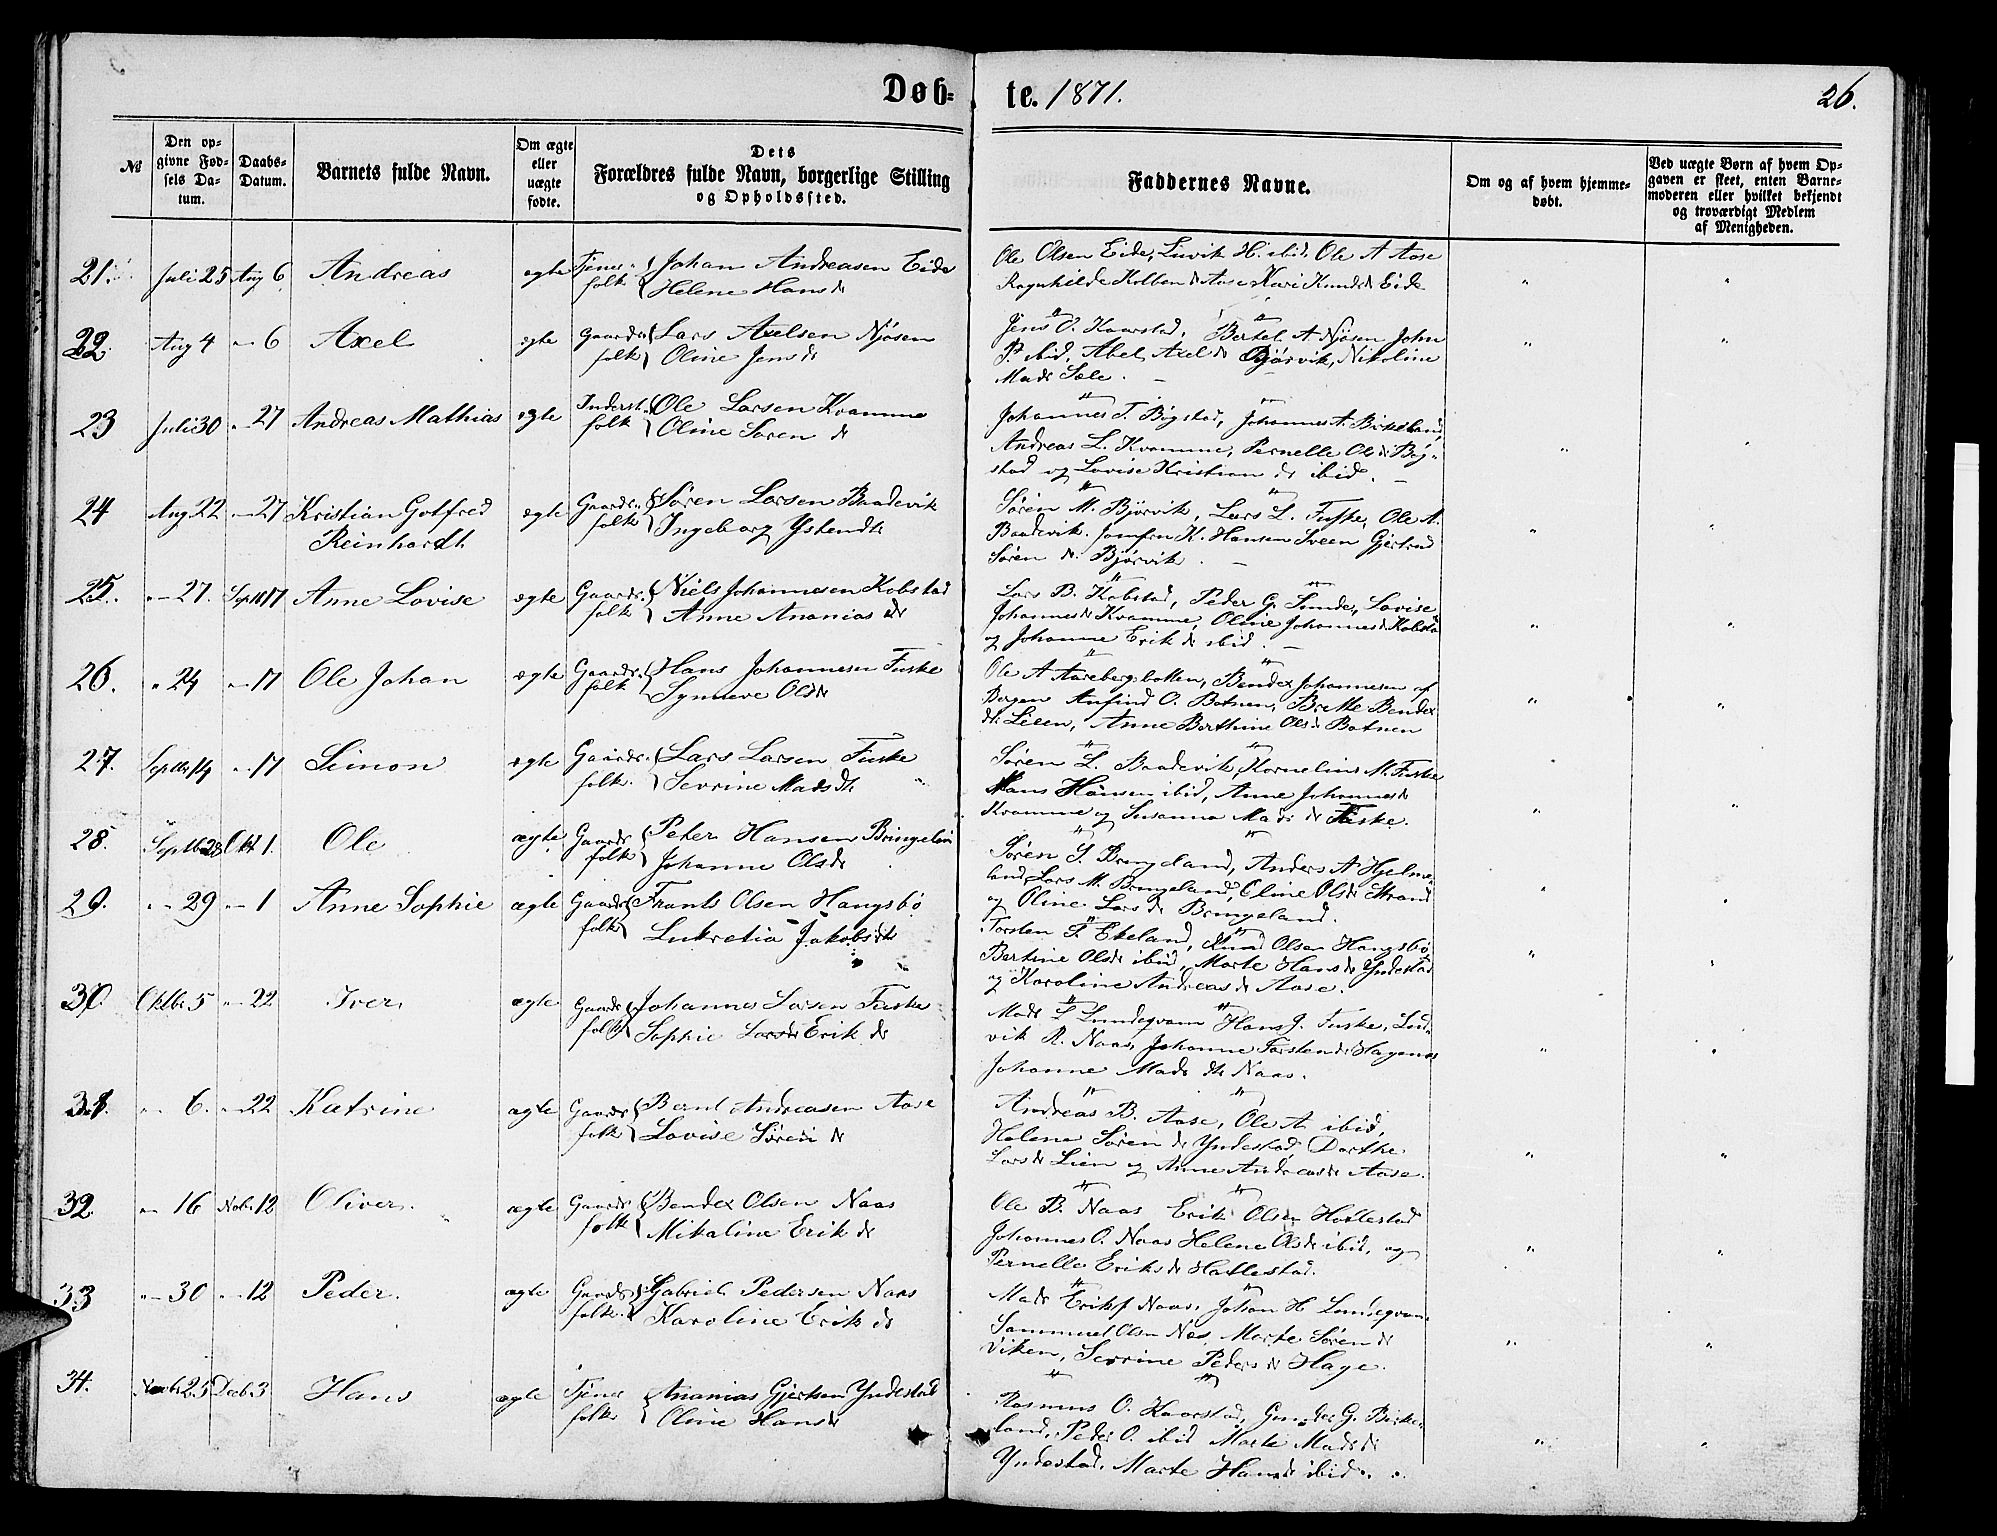 Døb-
te. 1871.
26.
№
Den op-
givne Fød-
sels Da-
tum.
Daabs-
Datum.
Barnets fulde Navn.
Om ægte
eller
uægte
fødte.
Dets
Forældres fulde Navn, borgerlige Stilling
og Opholdssted.
Faddernes Navne.
Om og af hvem hjemme-
døbt.
Ved uægte Børn af hvem Op-
gaven er skeet, enten Barne-
moderen eller hvilket bekjendt
og troværdigt Medlem
af Menigheden.
21. Juli 25 Aug 6 Andreas ægte Tjener- Johan Andreasen Eide
folk Helene Hans dr
Ole Olsen Eide, Luvik H. ibid, Ole A Aase
Ragnhilde Kolben dr Aase Kari Knuds dr Eide
22. Aug 4 " 6 Axel ægte Gaardr. Lars Axelsen Njøsen
folk Oline Jens dr
Jens O. Kaarstad, Bertel A Njøsen John
P ibid, Abel Axel dr Bjørvik, Nikoline
Mads Sæle.
23 Juli 30 " 27 Andreas Mathias ægte Inderst. Ole Larsen Kvamme
folk Oline Søren dr
Johannes T. Bøgstad, Johannes A. Birkeland,
Andreas L. Kvamme, Pernelle Ols dr Bøg-
stad og Lovise Kristian dr ibid.
24 Aug 22 " 27 Kristian Gotfred ægte Gaardr. Søren Larsen Baadevik
Reinhardt folk Ingeborg Ystendr
Søren M. Bjørvik, Lars L. Fuske, Ole A.
Baadevik. Jomfru K. Hansen Sveen Gjertrud
Søren dr Bjørvik.
25. " 27. Septbr 17 Anne Lovise ægte Gaardr. Niels Johannesen Kobstad
folk Anne Ananias dr
Lars B. Kobstad, Peder G. Sunde, Lovise
Johannes dr Kvamme, Oline Johannes dr Kobstd
og Johanne Erik dr ibid.
26. " 24 " 17 Ole Johan ægte Gaardr. Hans Johannesen Fuske
folk Synneve Olsdr
Ole A Aarebergsbotten, Bendex Johannesen af
Bergen Anfind O. Botnen, Britte Bendex
dr Lieen, Anne Berthine Ols dr Botnen
27. Septbr 14 " 17 Simon ægte Gaardr. Lars Larsen Fuske
folk. Sevrine Mads dr
Søren L. Baadevik, Kornelius M. Fuske
Hans Hansen ibid, Anne Johannes dr
Kvamme og Susanna Mads dr Fuske.
28. Septbr 28 Okt 1. Ole ægte Gaardr Peter Hansen Bringeland
folk Johanne Olsdr
Søren S. Bringeland, Anders A Hjelme-
land, Lars M. Bringeland, Oline Ols dr Strand
og Oline Lars dr Bringeland.
29. " 29 " 1 Anne Sophie ægte Gaardr Frants Olsen Hangsbø
folk Lukretia Jakobs dr
Torsten T. Ekeland, Knud Olsen Hangsbø
Bertine Olsdr ibid, Marte Hans dr Yndestad
og Karoline Andreas dr Aase.
30 Oktbr 5 " 22 Iver. ægte Gaardr Johannes Larsen Fuske
folk Sophie Larsdr Erik dr
Mads L Lundegvam Hans J. Fuske, Lud-
vik R. Naas, Johanne Torsten dr Hagenæs
Johanne Mads dr Naas.
31. " 6. " 22 Katrine ægte Gaardr Bernt Andreasen Aase
folk Lovise Søren dr
Andreas B. Aase, Ole A ibid,
Helene Søren dr Yndestad, Dorthe
Lars dr Lien og Anne Andreas dr Aase.
32. " 16 Nvbr. 12 Oliver. ægte Gaardr Bendex Olsen Naas
folk Mikaline Erik dr
Ole B. Naas Erik Olsen Hatlestad
Johannes O. Naas Helene Olsdr ibid, og
Pernelle Eriks dr Hatlestad.
33 " 30 " 12 Peder. ægte Gaardr Gabriel Pedersen Naas
folk. Karoline Erik dr
Mads Eriks Naas, Johan H Lundegvam
Sammuel Olsen Nas, Marte Søren dr
Viken, Sevrine Peders dr Hage.
34. Novbr 25 Decbr 3 Hans ægte Tjener Ananias Gjertsen Yndestad
folk Oline Hans dr
Rasmus O. Kaarstad, G. Birke-
land, Peder O. ibid Marte Mads dr
Yndestad. Marte Hans dr ibid.